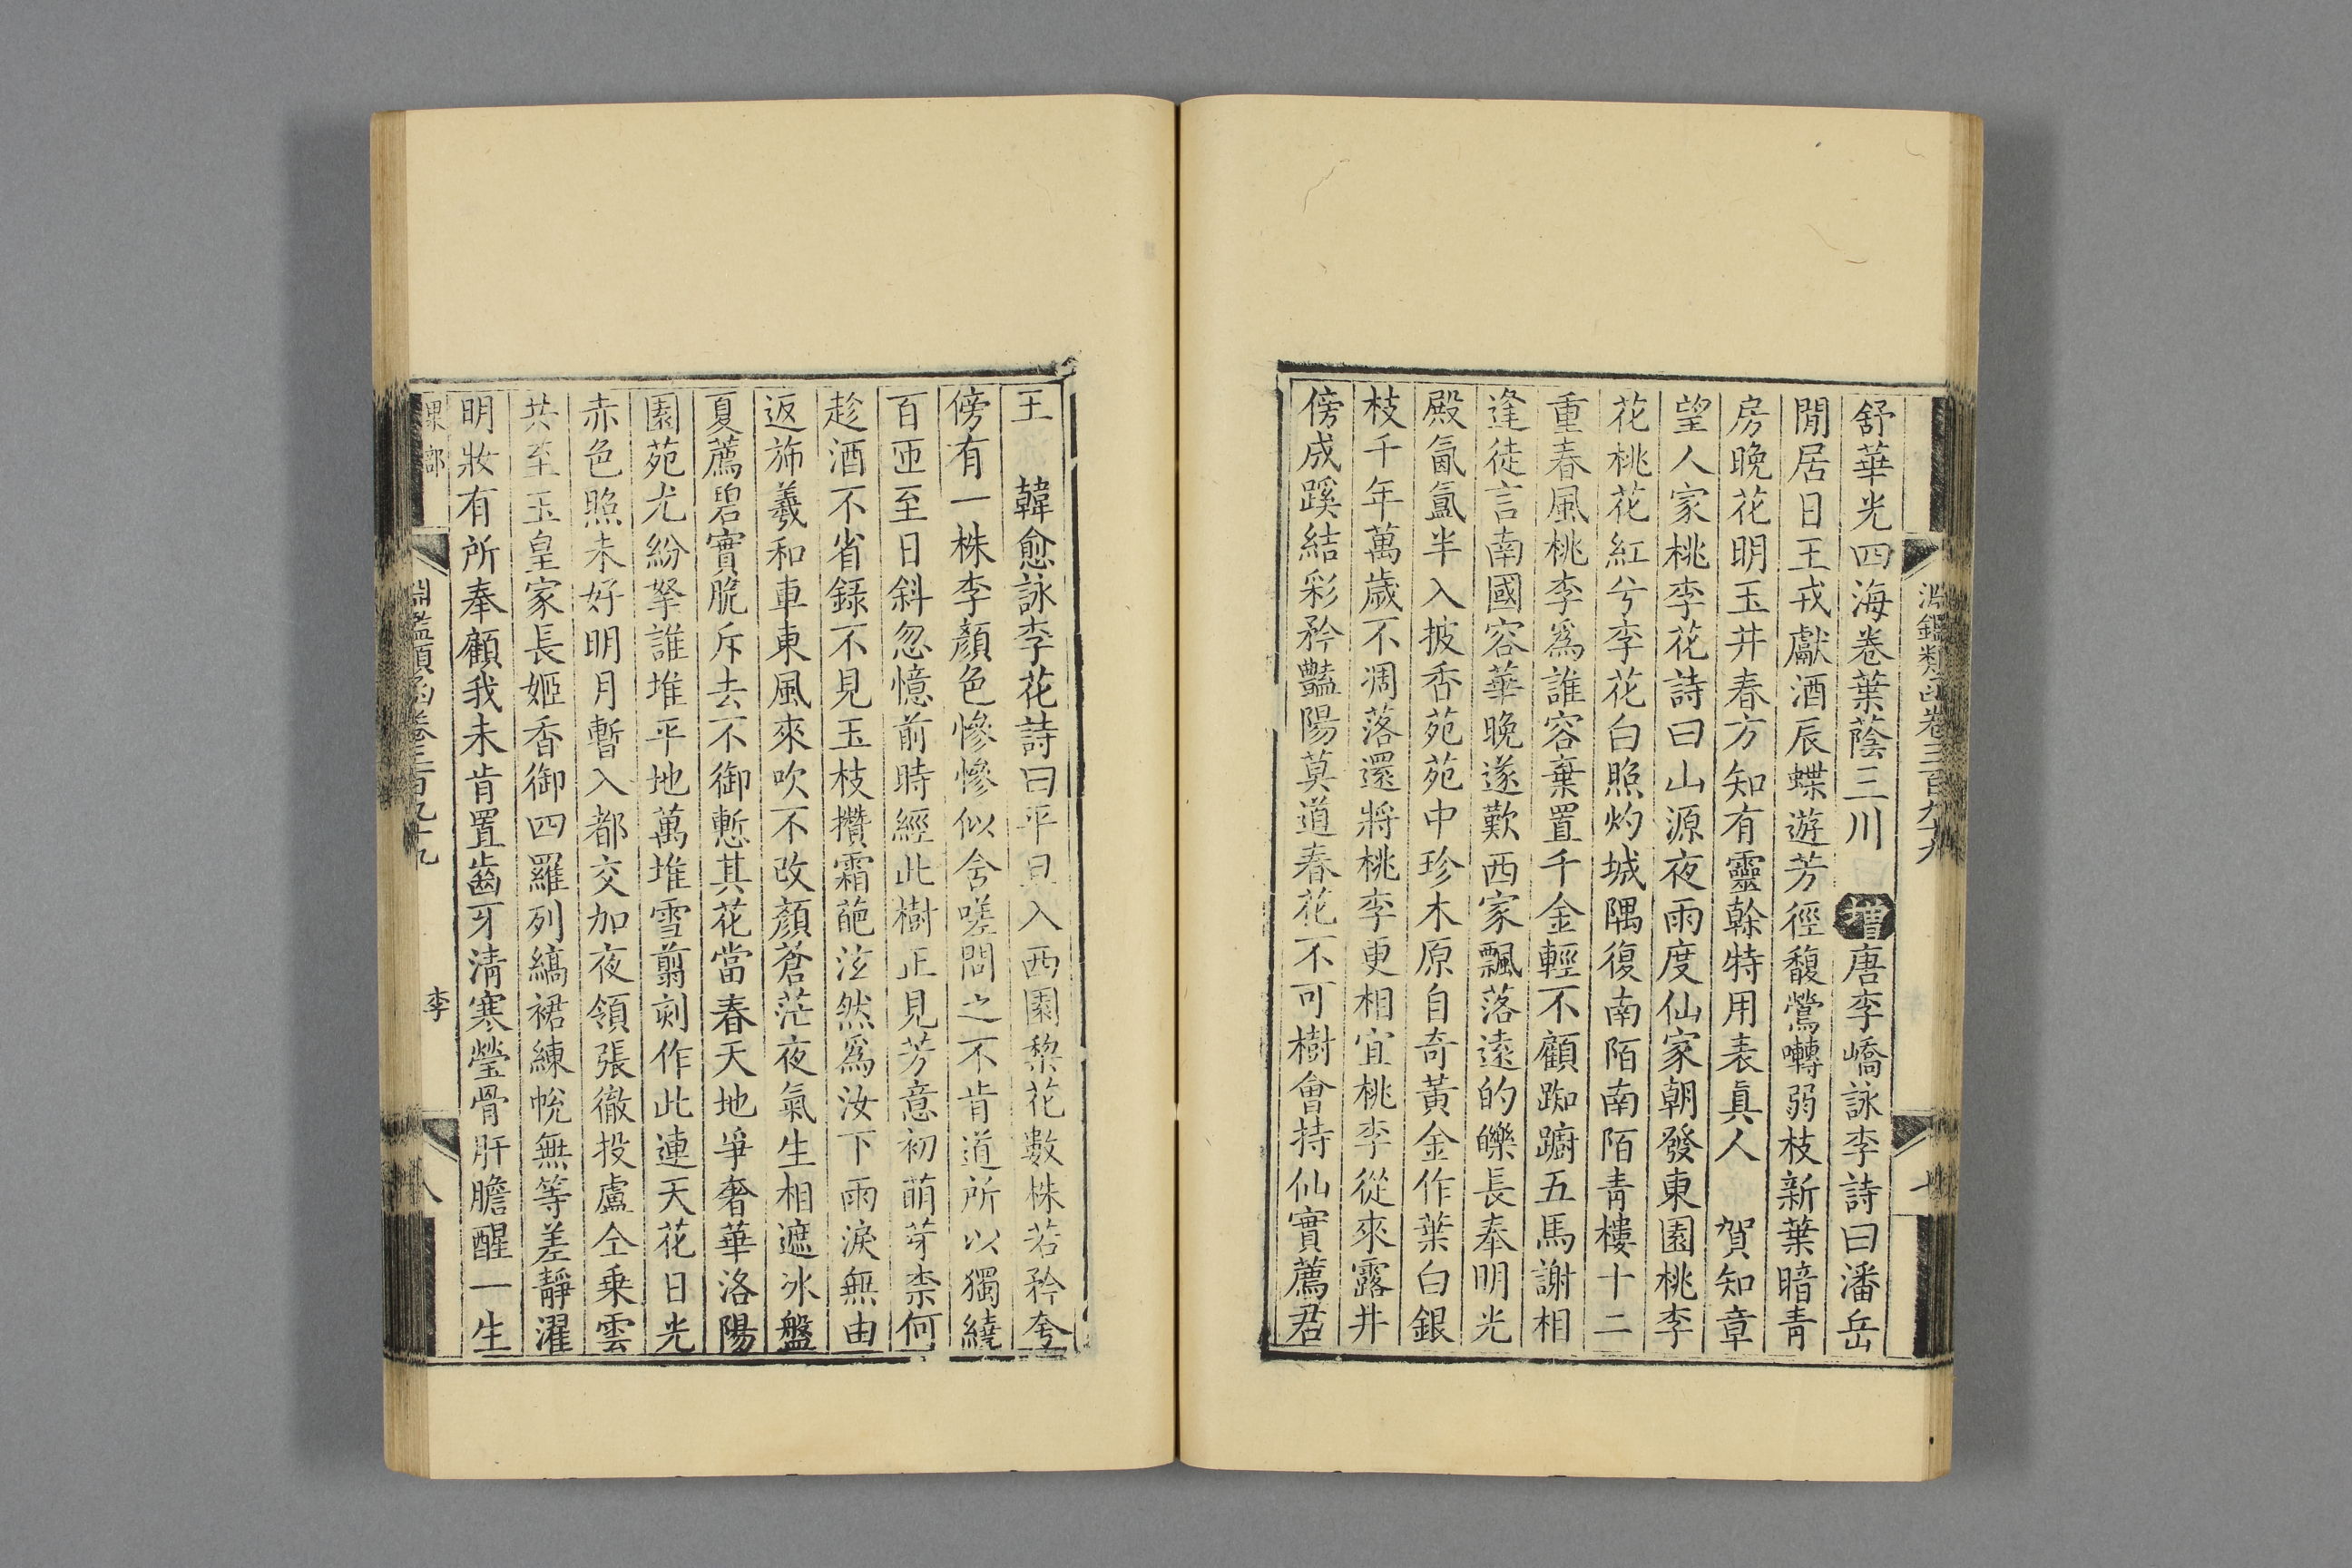 淵鑑類函卷三百九十九
舒華光四海卷葉蔭三川 增唐李嶠詠李詩曰潘岳
閒居日王戎獻酒辰蝶遊芳徑馥鶯囀弱枝新葉暗青
房晚花明玉井春方知有靈幹特用表眞人 賀知章
望人家桃李花詩曰山源夜雨度仙家朝發東園桃李
花桃花紅兮李花白照灼城隅復南陌南陌青樓十二
重春風桃李爲誰容棄置千金輕不顧踟躕五馬謝相
逢徒言南國容華晚遂歎西家飄落遠的皪長奉明光
殿氤氳半入披香苑苑中珍木原自奇黃金作葉白銀
枝千年萬歲不凋落還將桃李更相宜桃李從來露井
傍成蹊結彩矜豔陽莫道春花不可樹會持仙實薦君
王 韓愈詠李花詩曰平旦入西園梨花數株若矜夸
傍有一株李顏色慘慘似含嗟問之不肯道所以獨繞
百匝至日斜忽憶前時經此樹正見芳意初萌芽柰何
趁酒不省錄不見玉枝攢霜葩泫然爲汝下雨淚無由
返斾羲和車東風來吹不改顏蒼茫夜氣生相遮冰盤
夏薦碧實脆斥去不御慙其花當春天地爭奢華洛陽
園苑尤紛拏誰堆平地萬堆雪翦刻作此連天花日光
赤色照未好明月暫入都交加夜領張徹投盧仝乘雲
共至玉皇家長姬香御四羅列縞裙練帨無等差靜濯
明妝有所奉顧我未肯置齒牙清寒瑩骨肝膽醒一生
果部 淵鑑類函卷三百九十九 李 八